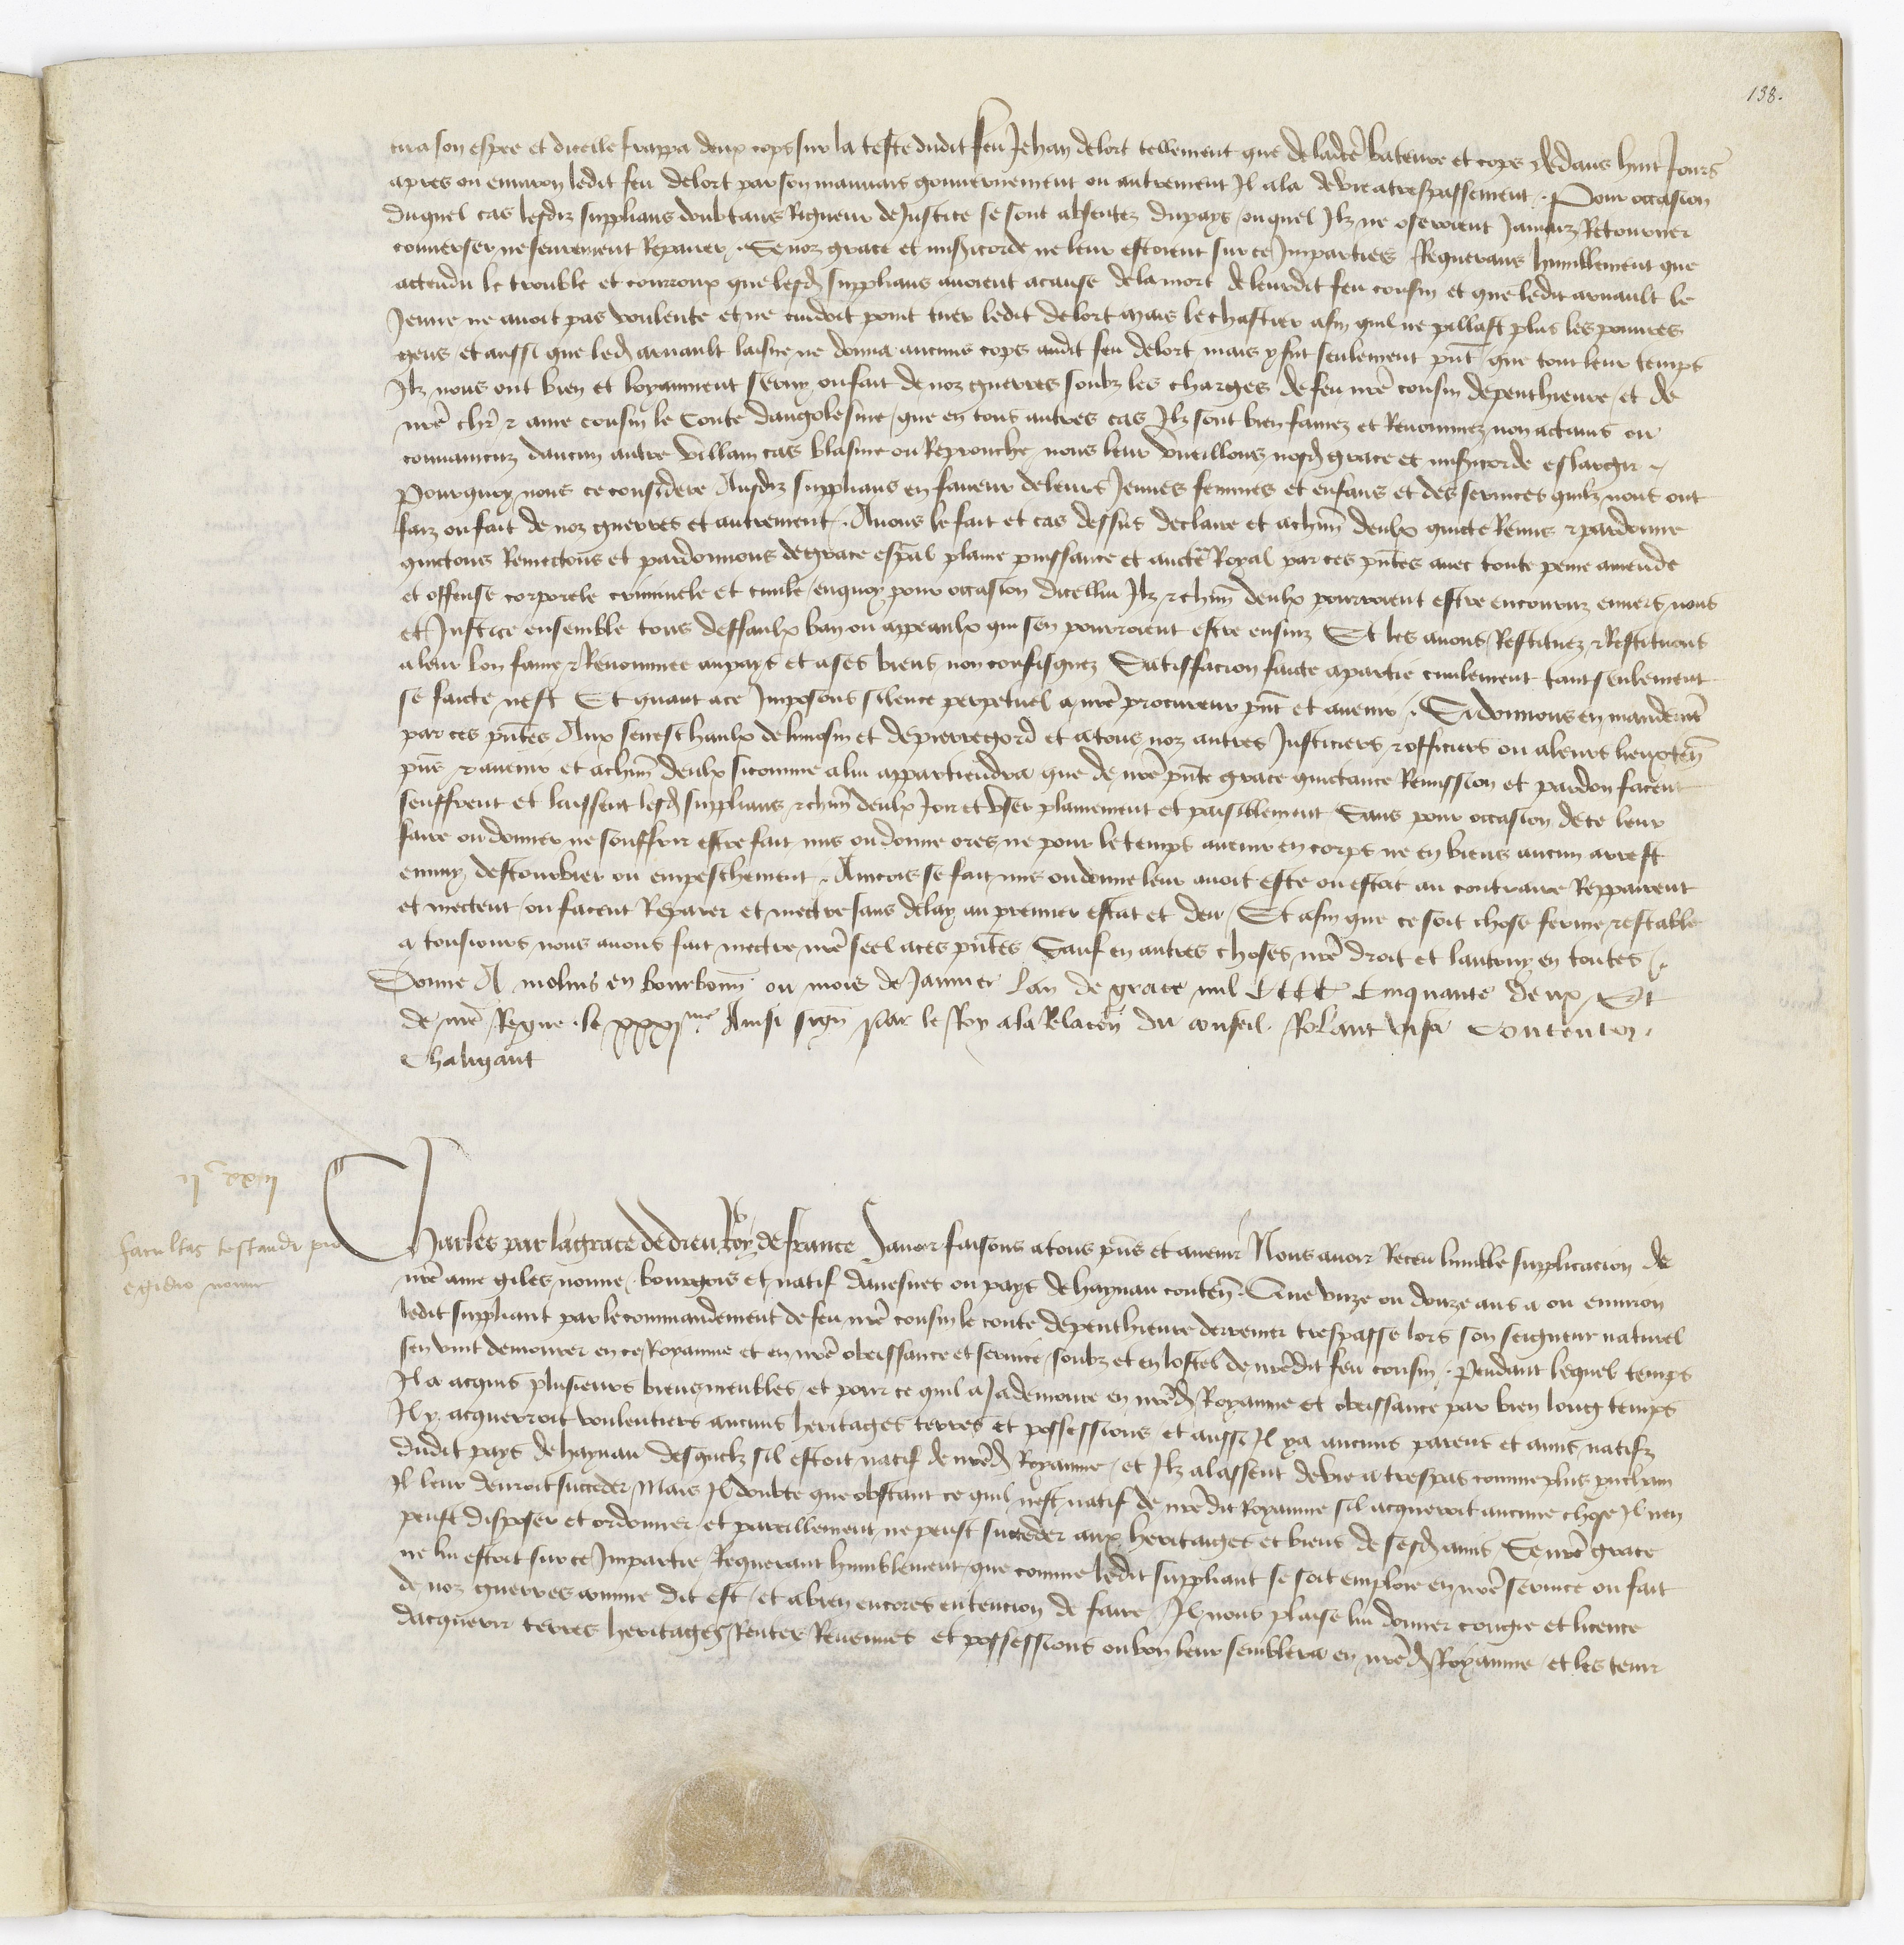 138.
tira son espee et dicelle frappa deux cops sur la teste dudit feu Jehan delort tellement que de ladcte bateure et cops dedans huit Jours
apres ou environ ledit feu delort par son mauvais gouvernement ou autrement Il ala de vie a trespassement. Pour occasion
duquel cas lesdiz supplians doubtans Rigueur de Justice se sont absentez du pays ouquel Ilz ne oseroient Jamaiz Retourner
converser ne seurement Reparer. Se noz grace et misericorde ne leur estoient sur ce Imparties Requerans humblement que
actendu le trouble et courroux que lesd supplians avoient a cause de la mort de leurdit feu cousin et que ledit arnault le
Jeune ne avoit pas voulente et ne cuidoit point tuer ledit delort mais le chastier afin quil ne pillast plus les pouvres
gens et aussi que led arnault laisne ne donna aucuns cops audit feu delort mais y fut seulement pnt que tout leur temps
Ilz nous ont bien et loyaument servy ou fait de noz guerres soubz les charges de feu nre cousin de penthievre et de
nre chr & ame cousin le Conte dangolesme que en tous autres cas Ilz sont bien famez et Renommez non actains ou
convaincuz daucun autre villain cas blasme ou Reprouche nous leur vueillons nosd grace et misericorde eslargir.
Pourquoy nous ce considere Ausdiz supplians en faveur de leurs Jeunes femmes et enfans et des services quilz nous ont
faiz ou fait de noz guerres et autrement. Avons le fait et cas dessus declaire et a chun deulx quicte Remis & pardonne
quictons Remectons et pardonnons de grace espal plaine puissance et aucte Royal par ces pntes avec toute peine amende
et offense corporele criminele et civile enquoy pour occasion dicellui Ilz & chun deulx pourroient estre encouruz envers nous
et Justice ensemble tous deffaulx ban ou appeaulx qui sen pourroient estre ensuiz Et les avons Restituez & Restituons
a leur bon fame & Renommee au pays et a ses biens non confisquez Satisfacion faicte a partie civilement tant seulement
se faicte nest Et quant a ce Imposons silence perpetuel a nre procureur pnt et avenir. Si donnons en mandement
par ces pntes Aux seneschaulx de limosin et de pierregord et a tous noz autres Justiciers & officiers ou a leurs lieuxten
pns & avenir et a chun deulx si comme a lui appartiendra que de nre pnte grace quictance Remission et pardon facent
seuffrent et laissent lesd supplians & chun deulx Joir et user plainement et paisiblement Sans pour occasion de ce leur
faire ou donner ne souffrir estre fait mis ou donne ores ne pour le temps avenir en corps ne en biens aucun arrest
ennuy destourbier ou empeschement. Aincois se fait mis ou donne leur avoit este ou estoit au contraire Repparent
et mectent ou facent Reparer et mectre sans delay au premier estat et deu. Et afin que ce soit chose ferme & estable
a tousjours nous avons fait mectre nre seel a ces pntes Sauf en autres choses nre droit et lautruy en toutes.
Donne A molins en bourbonn ou mois de Janvier Lan de grace mil CCCC Cinquante deux Et
de nre Regne le xxxjme Ainsi sign Par le Roy a la Relacon du conseil. Rolant visa Contentor.
Chaligant
IIc xxiij
facultas testandi pro
egidio nonne
Charles par la grace de dieu Roy de france Savoir faisons a tous pns et avenir Nous avoir Receu humble supplicacion de
nre ame giles nonne bourgois et natif davesnes ou pays de haynau conten. Que unze ou douze ans a ou environ
ledit suppliant par le commandement de feu nre cousin le conte de penthievre derrenier trespasse lors son seigneur naturel
sen vint demourer en ce Royaume et en nre obeissance et service soubz et en lostel de nredit feu cousin. Pendant lequel temps
Il a acquis plusieurs biens meubles et pour ce quil a Ja demoure en nred Royaume et obeissance par bien long temps
Il y acquerroit voulentiers aucuns heritages terres et possessions et aussi Il y a aucuns parens et amis natifz
dudit pays de haynau desquelz sil estoit natif de nred Royaume et Ilz alassent de vie a trespas comme plus prochain
Il leur devroit succeder Mais Il doubte que obstant ce quil nest natif de nredit Royaume sil acqueroit aucune chose Il nen
peust disposer et ordonner et pareillement ne peust succeder aux heritaiges et biens de sesd amis Se nre grace
ne lui estoit sur ce Impartie Requerant humblement que comme ledit suppliant se soit emploie en nre service ou fait
de noz guerres comme dit est et a bien encores entencion de faire Il nous plaise lui donner congie et licence
dacquerir terres heritages Rentes Revenues et possessions ou bon leur semblera en nred Royaume et les tenir